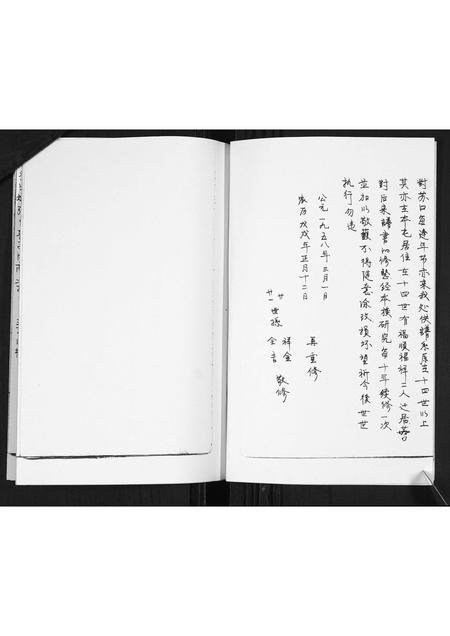 對苏口每逢年节亦来我处供譜系屋至十四世以上
其亦在本屯居住在十四世有福順福祥二人迁居
對后来譜書的修整經本族研究每十年續修一次
並加以敬藏不得隨意涂改損坏望祈今後世世
执行勿违
公元一九五八年三月一日
农历戊戌年正月十二日
再重修
廿世孫 祥金
廿一 全吉
敬修